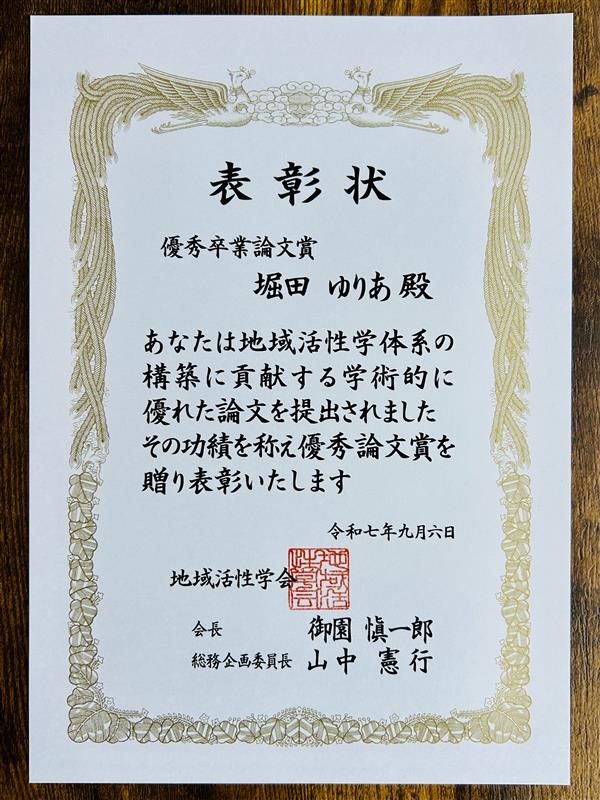 表彰状
優秀卒業論文賞
堀田 ゆりあ 殿
あなたは地域活性学体系の
構築に貢献する学術的に
優れた論文を提出されました
その功績を称え優秀論文賞を
贈り表彰いたします
令和七年九月六日
地域活性学会
地域活性学会
会長 御園 愼一郎
総務企画委員長 山中 憲行